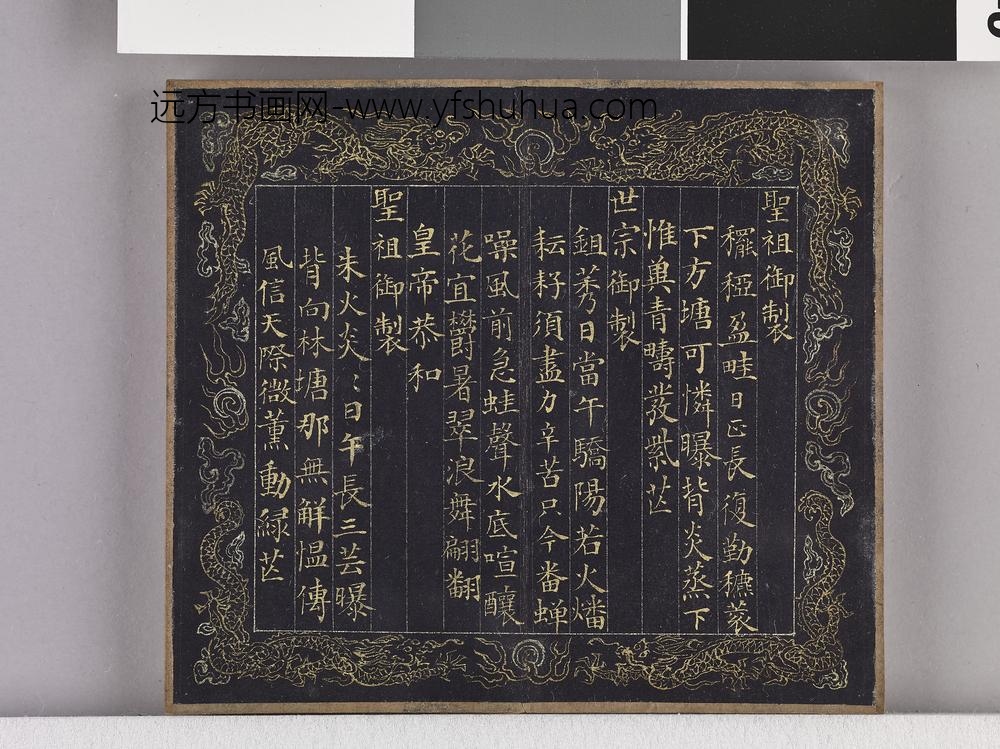 远方书画网-www.yfshuhua.com
聖祖御製
穲稏盈畦日正長復勤穮蔉
下方塘可憐曝背炎蒸下
惟兾青疇發紫芒
世宗御製
鉏莠日當午驕陽若火燔
耘耔須盡力辛苦只今畨蝉
噪風前急蛙聲水底喧釀
花宜欝暑翠浪舞翩翻
皇帝恭和
聖祖御製
朱火炎〻日午長三芸曝
背向林塘那無解愠傳
風信天際微薰動緑芒